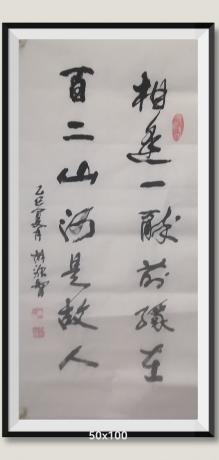 相逢一醉前缘在
百二山河是故人
乙巳夏月
50x100